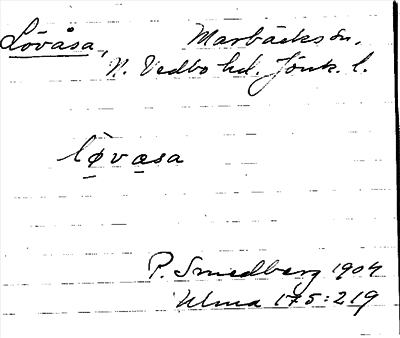 Lövåsa, Marbäcks sn.
N. Vedbo hd. Jönk. l.
løvæsa
P. Smedberg 1904
Ulma 175:219